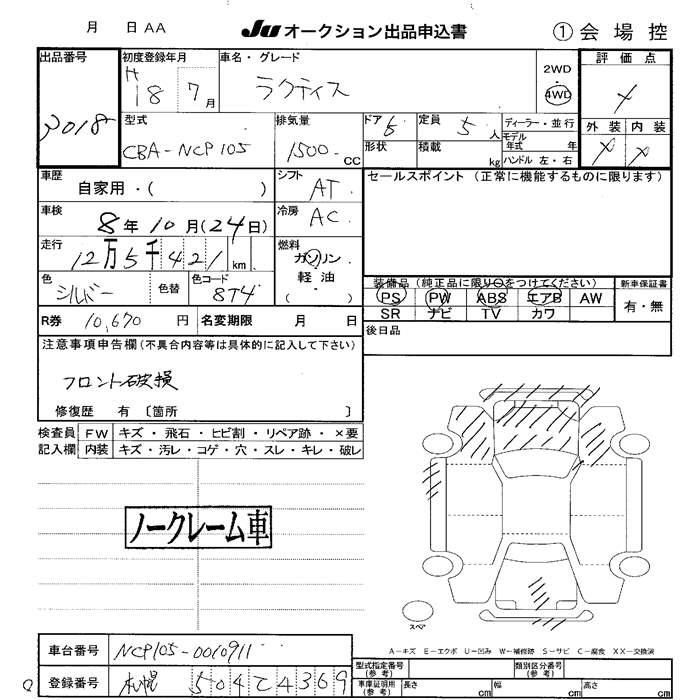 月 日 AA
JU オークション出品申込書
① 会場控
出品番号
3018
初度登録年月
H 18 7月
車名・グレード
ラクティス
2WD
・
4WD
評価点
外装 内装
型式
CBA-NCP105
排気量
1500 CC
ドア 5
形状
定員 5 人
積載 kg
ディーラー・並行
モデル年式 年
ハンドル 左・右
車歴
自家用・( )
シフト
AT
セールスポイント (正常に機能するものに限ります)
車検
8年10月(24日)
冷房
AC
走行
12万5千421 km
燃料
ガソリン
軽油
( )
色
シルバー
色替
色コード
8T4
装備品(純正品に限り○をつけてください)
新車保証書
PS PW ABS エアB AW
SR ナビ TV カワ
有・無
R券 10,670 円
名変期限 月 日
後日品
注意事項申告欄(不具合内容等は具体的に記入して下さい)
フロント破損
修復歴 有 〔箇所 〕
検査員 FW キズ・飛石・ヒビ割・リペア跡・×要
記入欄 内装 キズ・汚レ・コゲ・穴・スレ・キレ・破レ
ノークレーム車
スペア
A-キズ E-エクボ U-凹み W-補修跡 S-サビ C-腐食 XX-交換済
車台番号 NCP105-0010911
登録番号 札幌 504 4369
型式指定番号(参考)
類別区分番号(参考)
車庫証明用(参考) 長さ cm 幅 cm 高さ cm